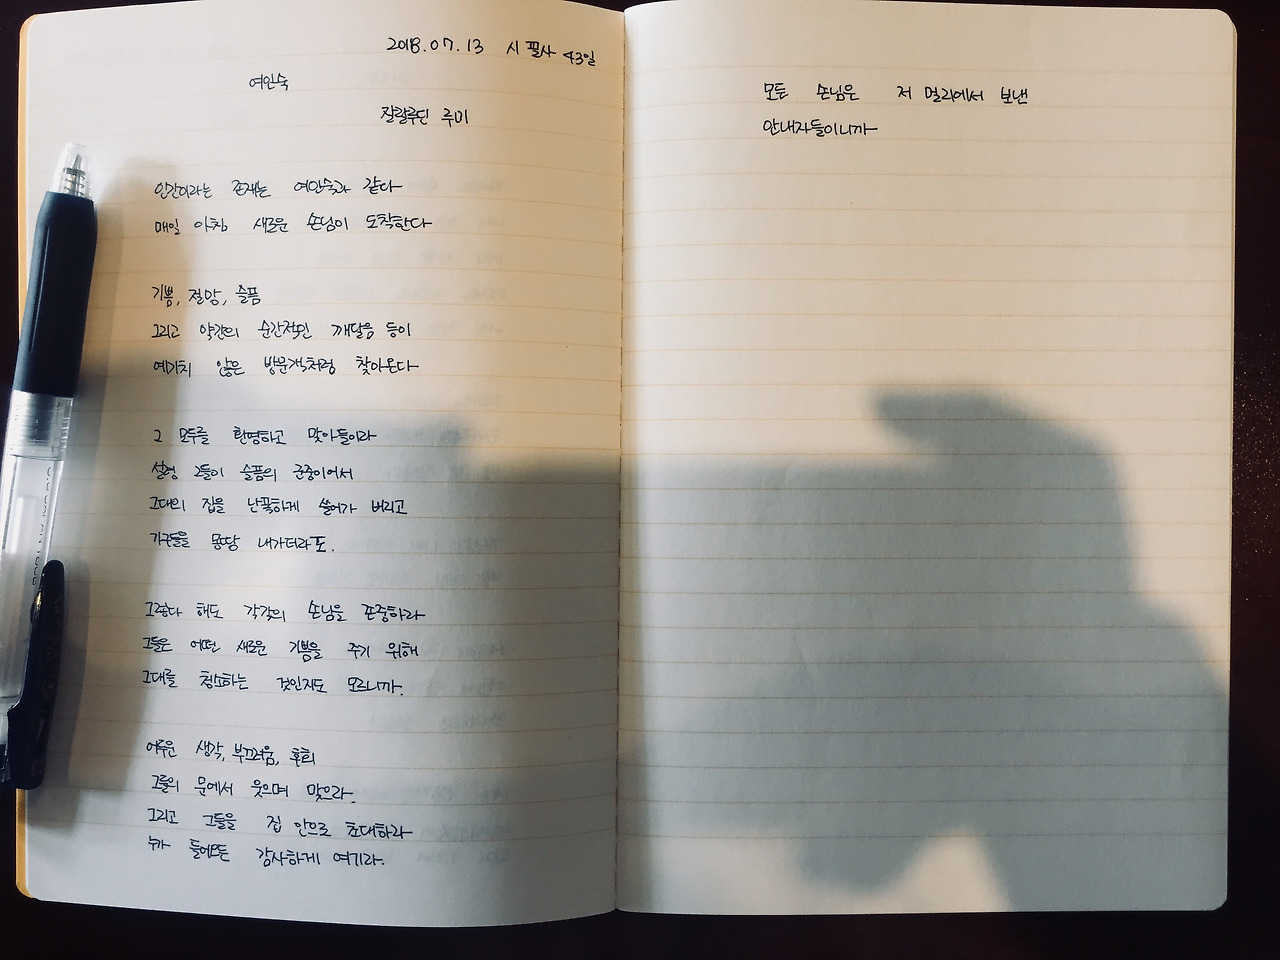 2018.07.13 시 필사 43일
여인숙
잘랄루딘 루미
인간이라는 존재는 여인숙과 같다
매일 아침 새로운 손님이 도착한다
기쁨, 절망, 슬픔
그리고 약간의 순간적인 깨달음 등이
예기치 않은 방문객처럼 찾아온다
그 모두를 환영하고 맞아들이라
설령 그들이 슬픔의 군중이어서
그대의 집을 난폭하게 쓸어가 버리고
가구들을 몽땅 내가더라도.
그렇다 해도 각각의 손님을 존중하라
그들은 어떤 새로운 기쁨을 주기 위해
그대를 청소하는 것인지도 모르니까.
어두운 생각, 부끄러움, 후회
그들의 문에서 웃으며 맞으라.
그리고 그들을 집 안으로 초대하라
누가 들어오든 감사하게 여기라.
모든 손님은 저 멀리에서 보낸
안내자들이니까